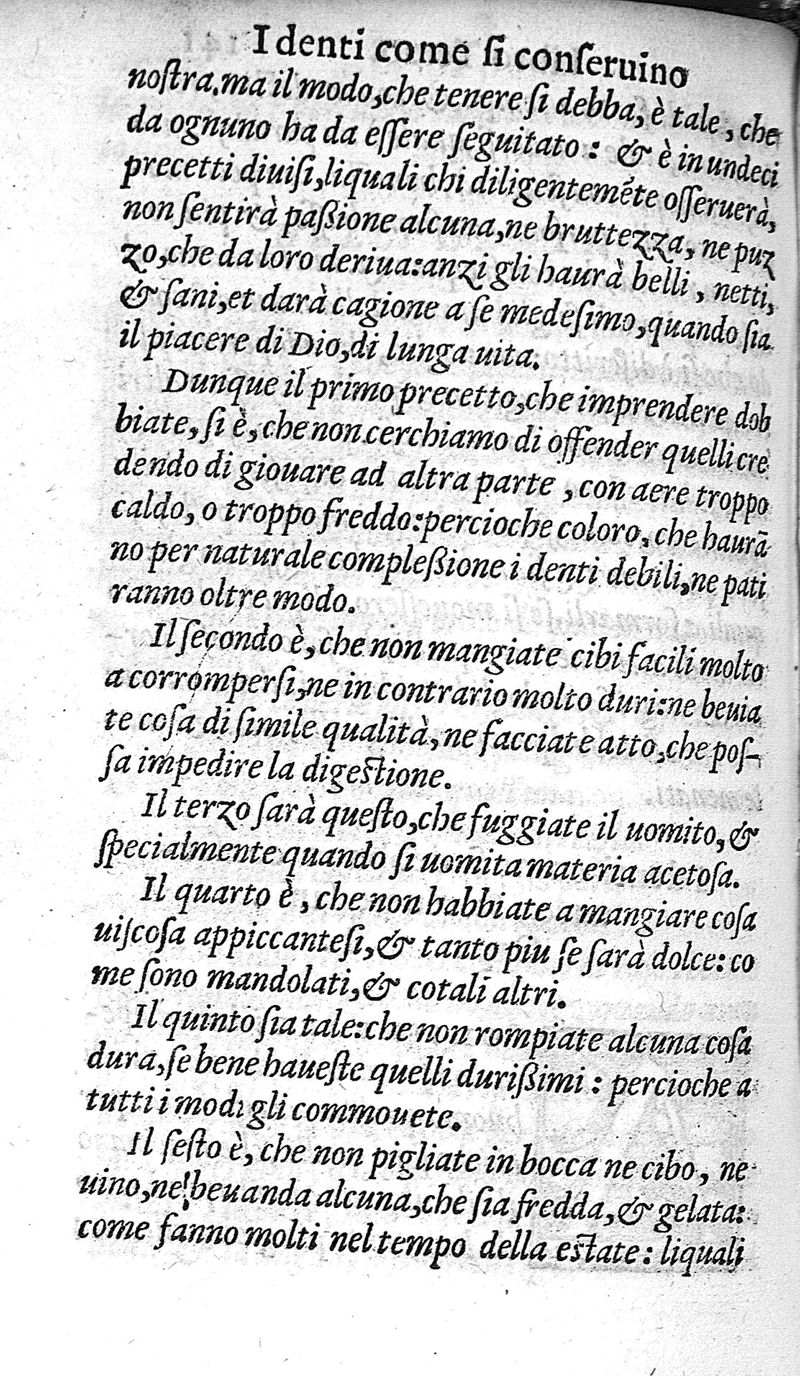 I denti come ſi conſeruino
noſtra.ma il modo,che tenere ſi debba, è tale, che
da ognuno ha da eſſere ſeguitato : & è in undeci
precetti diuiſi,liquali chi diligentemẽte oſſeruerà,
non ſentirà paßione alcuna,ne bruttezza, ne puz
zo,che da loro deriua:anzi gli haurà belli, netti,
& ſani,et darà cagione a ſe medeſimo,quando ſia
il piacere di Dio,di lunga uita.
Dunque il primo precetto,che imprendere dob
biate, ſi è, che non cerchiamo di offender quelli cre
dendo di giouare ad altra parte, con aere troppo
caldo, o troppo freddo:percioche coloro, che haurã
no per naturale compleßione i denti debili,ne pati
ranno oltre modo.
Il ſecondo è, che non mangiate cibi facili molto
a corromperſi,ne in contrario molto duri:ne beuia
te coſa di ſimile qualità, ne facciate atto,che poſ-
ſa impedire la digeſtione.
Il terzo ſarà queſto,che fuggiate il uomito, &
ſpecialmente quando ſi uomita materia acetoſa.
Il quarto è, che non habbiate a mangiare coſa
uiſcoſa appiccanteſi,& tanto piu ſe ſarà dolce: co
me ſono mandolati,& cotali altri.
Il quinto ſia tale:che non rompiate alcuna coſa
dura,ſe bene haueſte quelli durißimi : percioche a
tutti i modi gli commouete.
Il ſeſto è, che non pigliate in bocca ne cibo, ne
uino,ne beuanda alcuna,che ſia fredda,& gelata:
come fanno molti nel tempo della eſtate : liquali